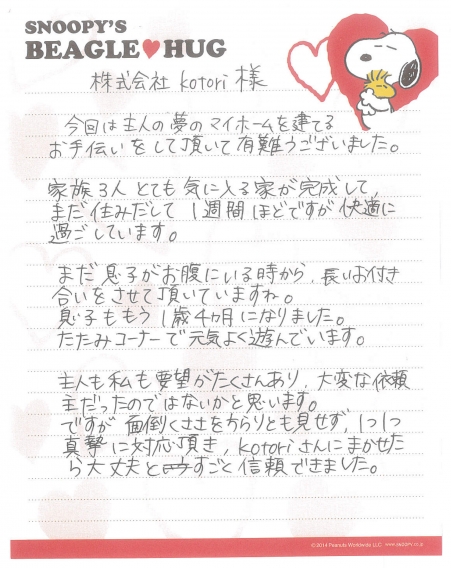 SNOOPY'S
BEAGLE♥HUG
株式会社 kotori 様
今回は主人の夢のマイホームを建てる
お手伝いをして頂いて有難うございました。
家族3人とても気に入る家が完成して、
まだ住みだして1週間ほどですが快適に
過ごしています。
まだ息子がお腹にいる時から、長いお付き
合いをさせて頂いていますね。
息子ももう1歳4ヵ月になりました。
たたみコーナーで元気よく遊んでいます。
主人も私も要望がたくさんあり、大変な依頼
主だったのではないかと思います。
ですが面倒くささをちらりとも見せず、1つ1つ
真摯に対応頂き、kotoriさんにまかせた
ら大丈夫とすごと信頼できました。
©2014 Peanuts Worldwide LLC www.snoopy.co.jp